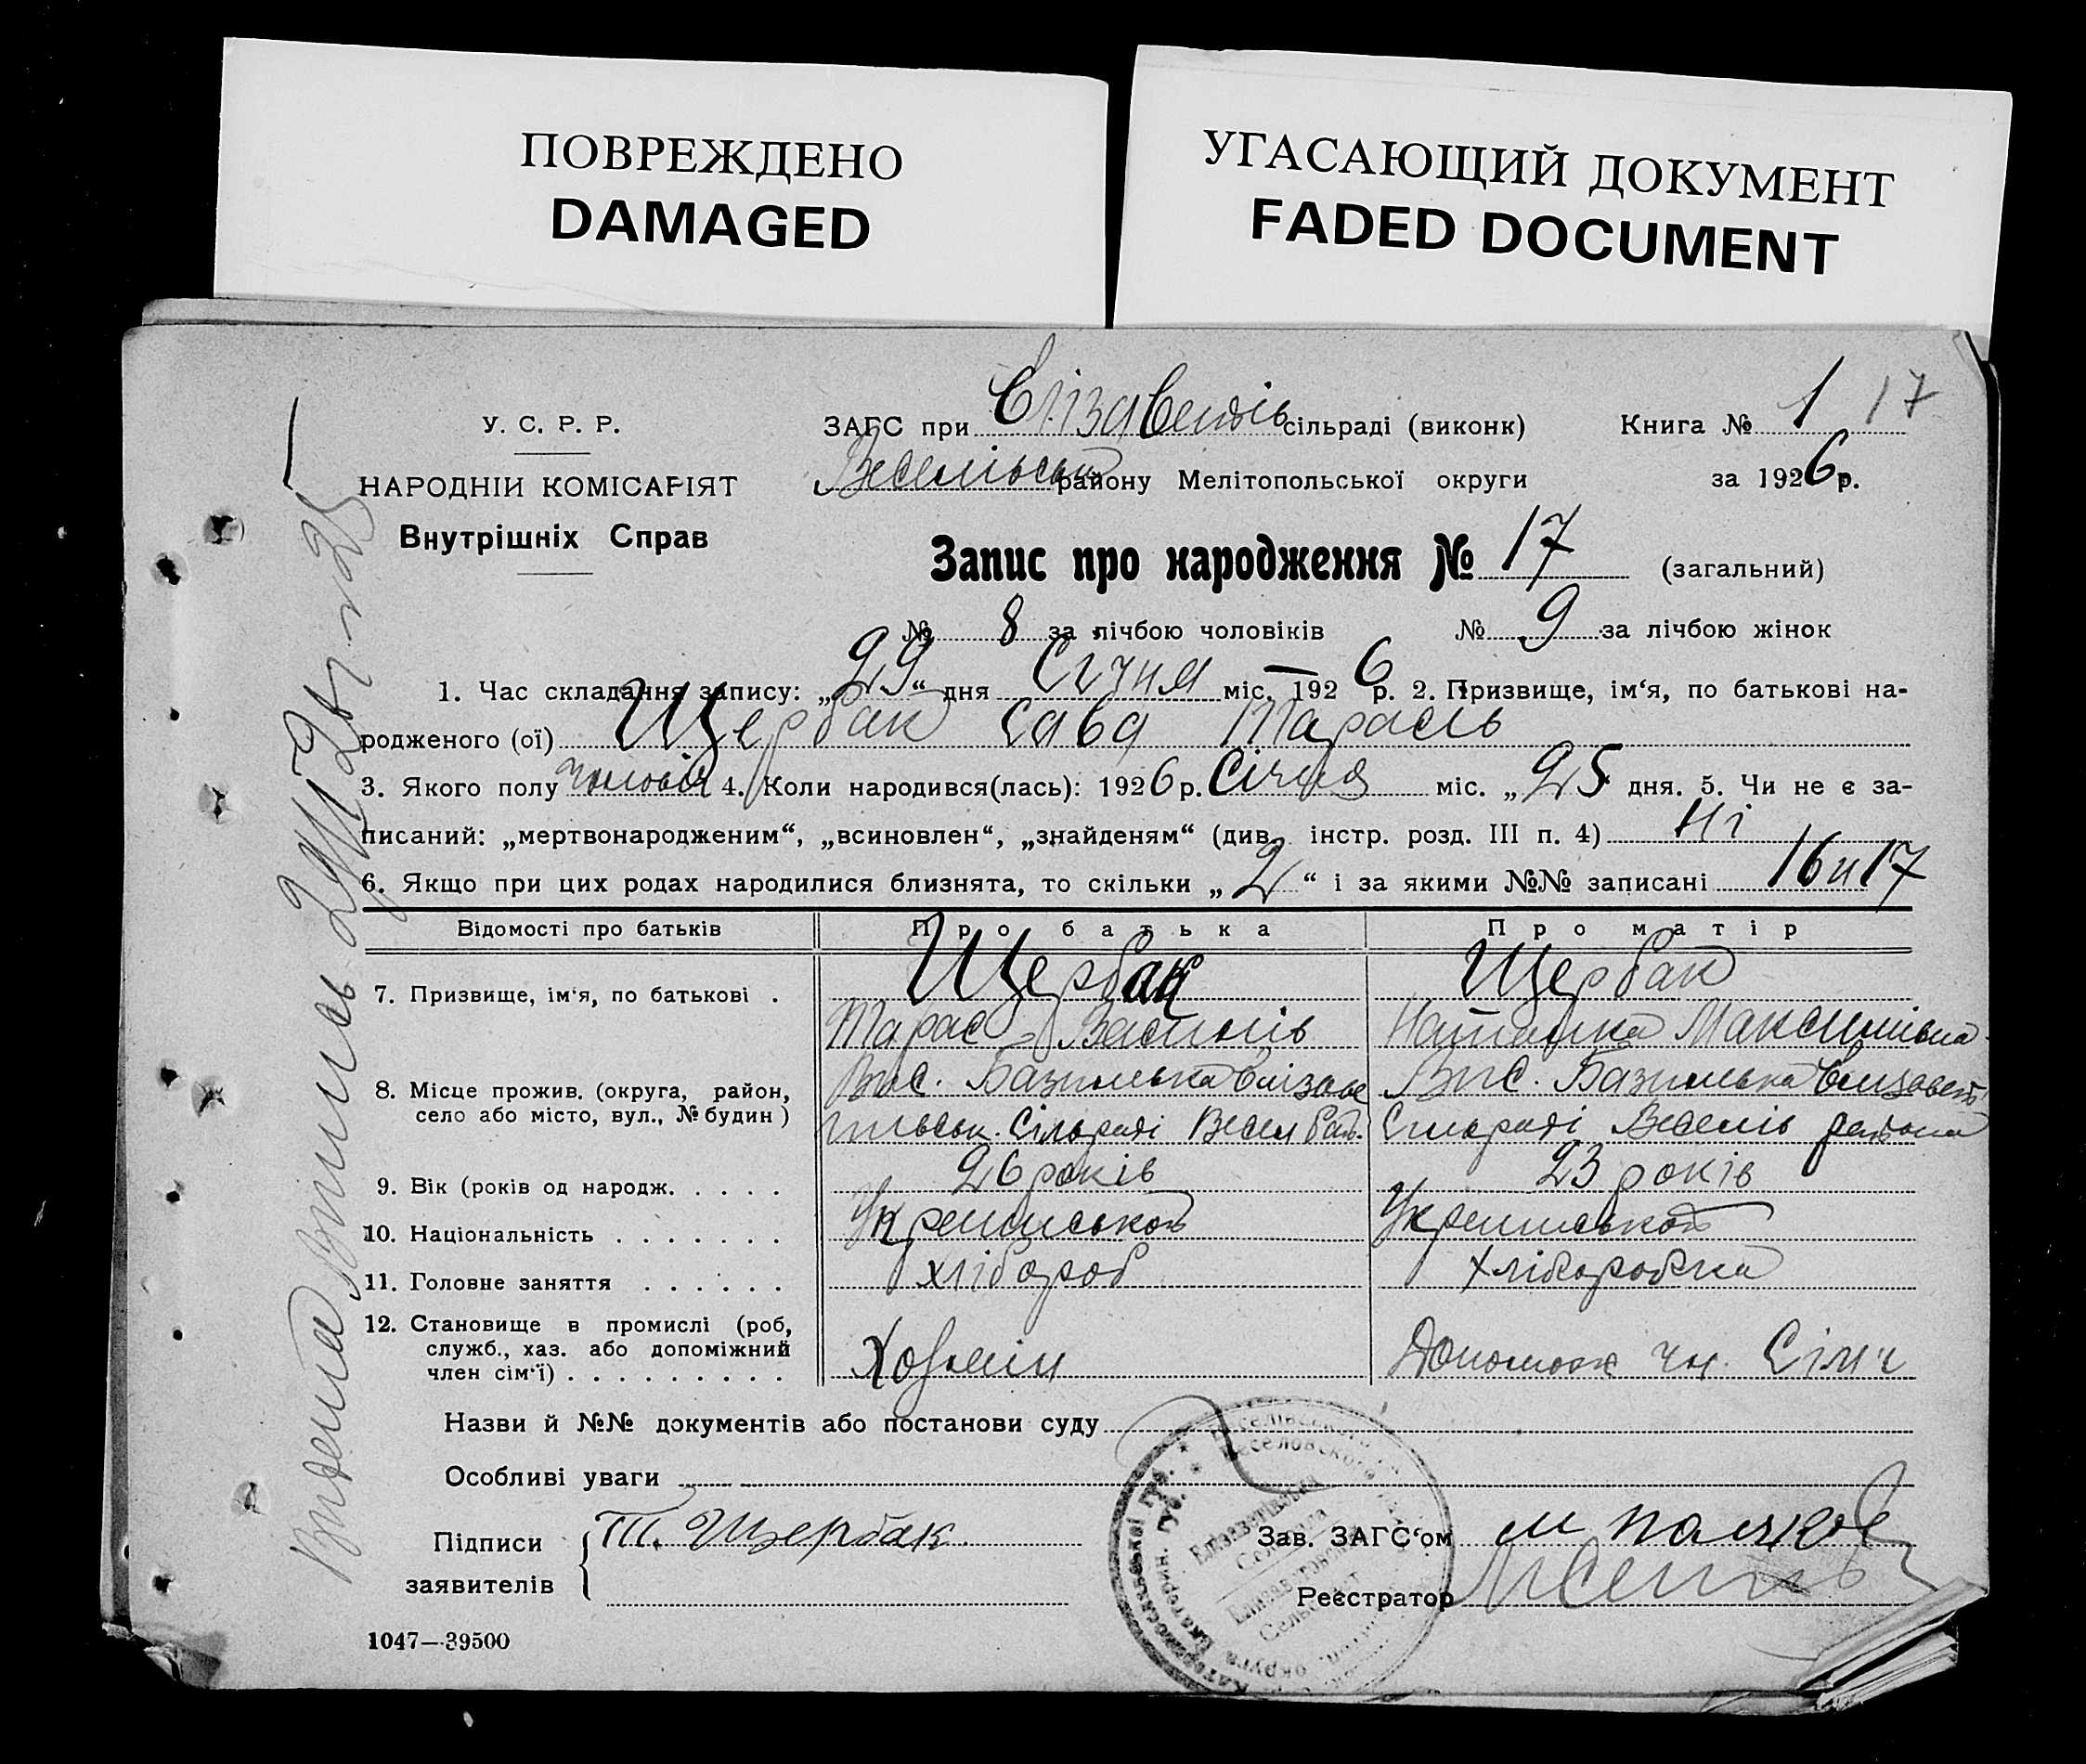 ПОВРЕЖДЕНО
DAMAGED
УГАСАЮЩИЙ ДОКУМЕНТ
FADED DOCUMENT
У. С. Р. Р.
НАРОДНІИ КОМІСАРІЯТ
Внутрішніх Справ
ЗАГС при Єлізаветів сільраді (виконк) Книга № 1 17
Веселівськ району Мелітопольської округи за 1926 р.
Запис про народження № 17 (загальний)
№ 8 за лічбою чоловіків № 9 за лічбою жінок
1. Час складання запису: „29“ дня Січня міс. 1926 р. 2. Призвище, ім‘я, по батькові на-
родженого (ої) Щербак Сава Тарасів
3. Якого полу чоловіч 4. Коли народився(лась): 1926 р. Січня міс. „25 дня. 5. Чи не є за-
писаний: „мертвонародженим“, „всиновлен“, „знайденям“ (див. інстр. розд. III п. 4) Ні
6. Якщо при цих родах народилися близнята, то скільки „2“ і за якими №№ записані 16 и 17
Відомості про батьків Про батька Про матір
7. Призвище, ім‘я, по батькові . Щербак Щербак
Тарас Василів Наталка Максимівна
8. Місце прожив. (округа, район, село або місто, вул., № будин) Вис. Базилевка Єлізаве Вис. Базилевка Єлизавет
Сільраді Весел Сільраді Веселів района
9. Вік (років од народж. . . . . 26 років 23 років
10. Національність . . . . . . . Українськой Українськой
11. Головне заняття . . . . . . хлібороб хліборобка
12. Становище в промислі (роб, служб., хаз. або допоміжний член сім‘ї) . . . . . . . . . Хозяїн Допомож чл. Сім‘ї
Назви й №№ документів або постанови суду
Особливі уваги
Підписи заявителів Т. Щербак.
Зав. ЗАГС‘ом
Реєстратор
1047—39500